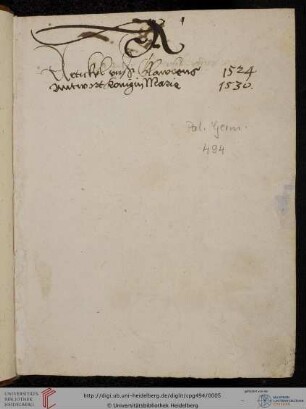 A
Artickel unß Glawbens 1524
Antwort konigin Maria 1530.
Pal. Germ.
494
UNIVERSITÄTS-
BIBLIOTHEK
HEIDELBERG
http://digi.ub.uni-heidelberg.de/diglit/cpg494/0005
© Universitätsbibliothek Heidelberg